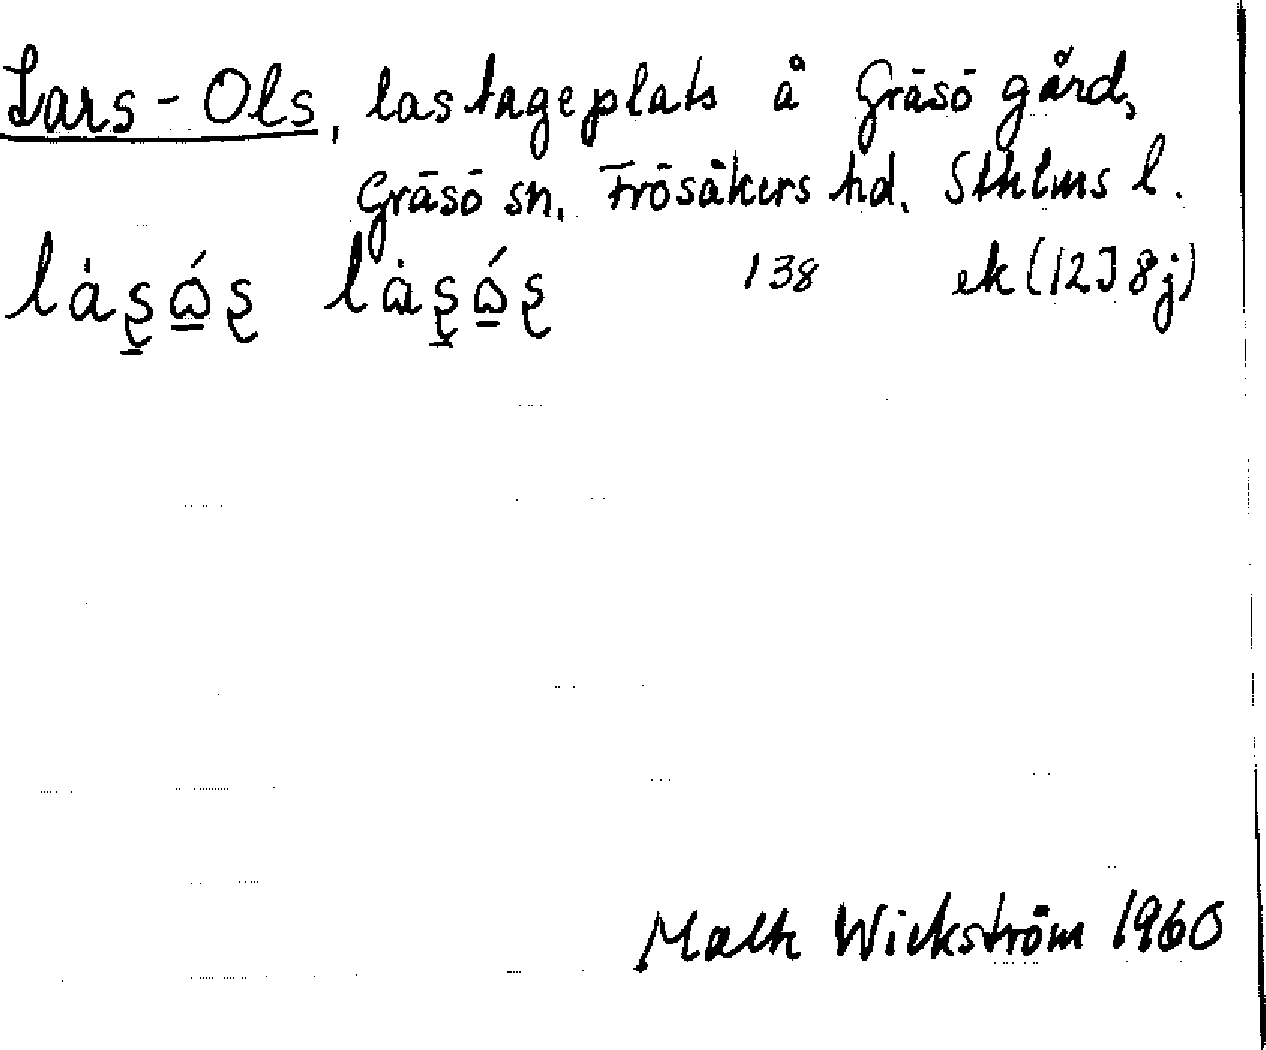 Lars-Ols, lastageplats å Gräsö gård,
Gräsö sn. Frösåkers hd. Sthlms l.
138 ek (12I 8j)
Math Wickström 1960